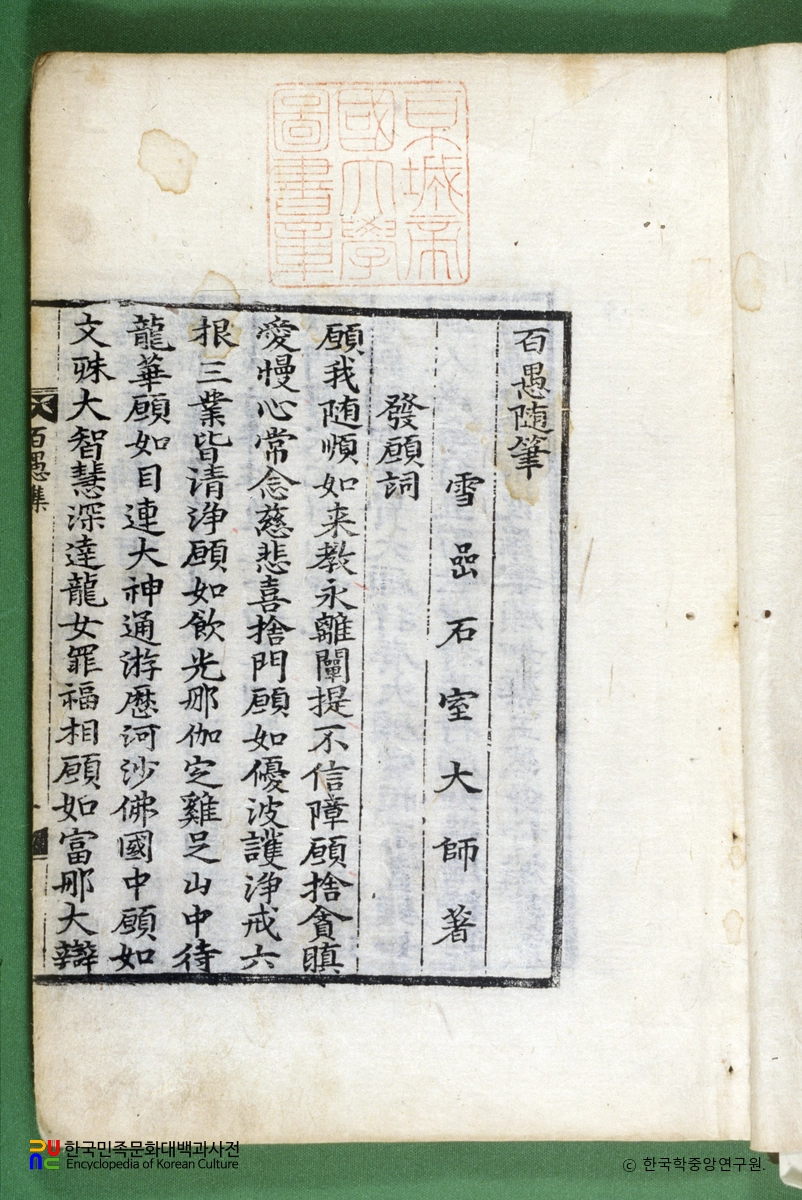 京城帝
國大學
圖書章
百愚隨筆
雪嵒石室大師著
發願詞
願我随順如来教永離闡提不信障願捨貪瞋
愛慢心常念慈悲喜捨門願如優波護浄戒六
根三業皆清浄願如飲光那伽定雞足山中待
龍華願如目連大神通游歷河沙佛國中願如
文殊大智慧深達龍女罪福相願如富那大辯
百愚集
한국민족문화대백과사전
Encyclopedia of Korean Culture
© 한국학중앙연구원.